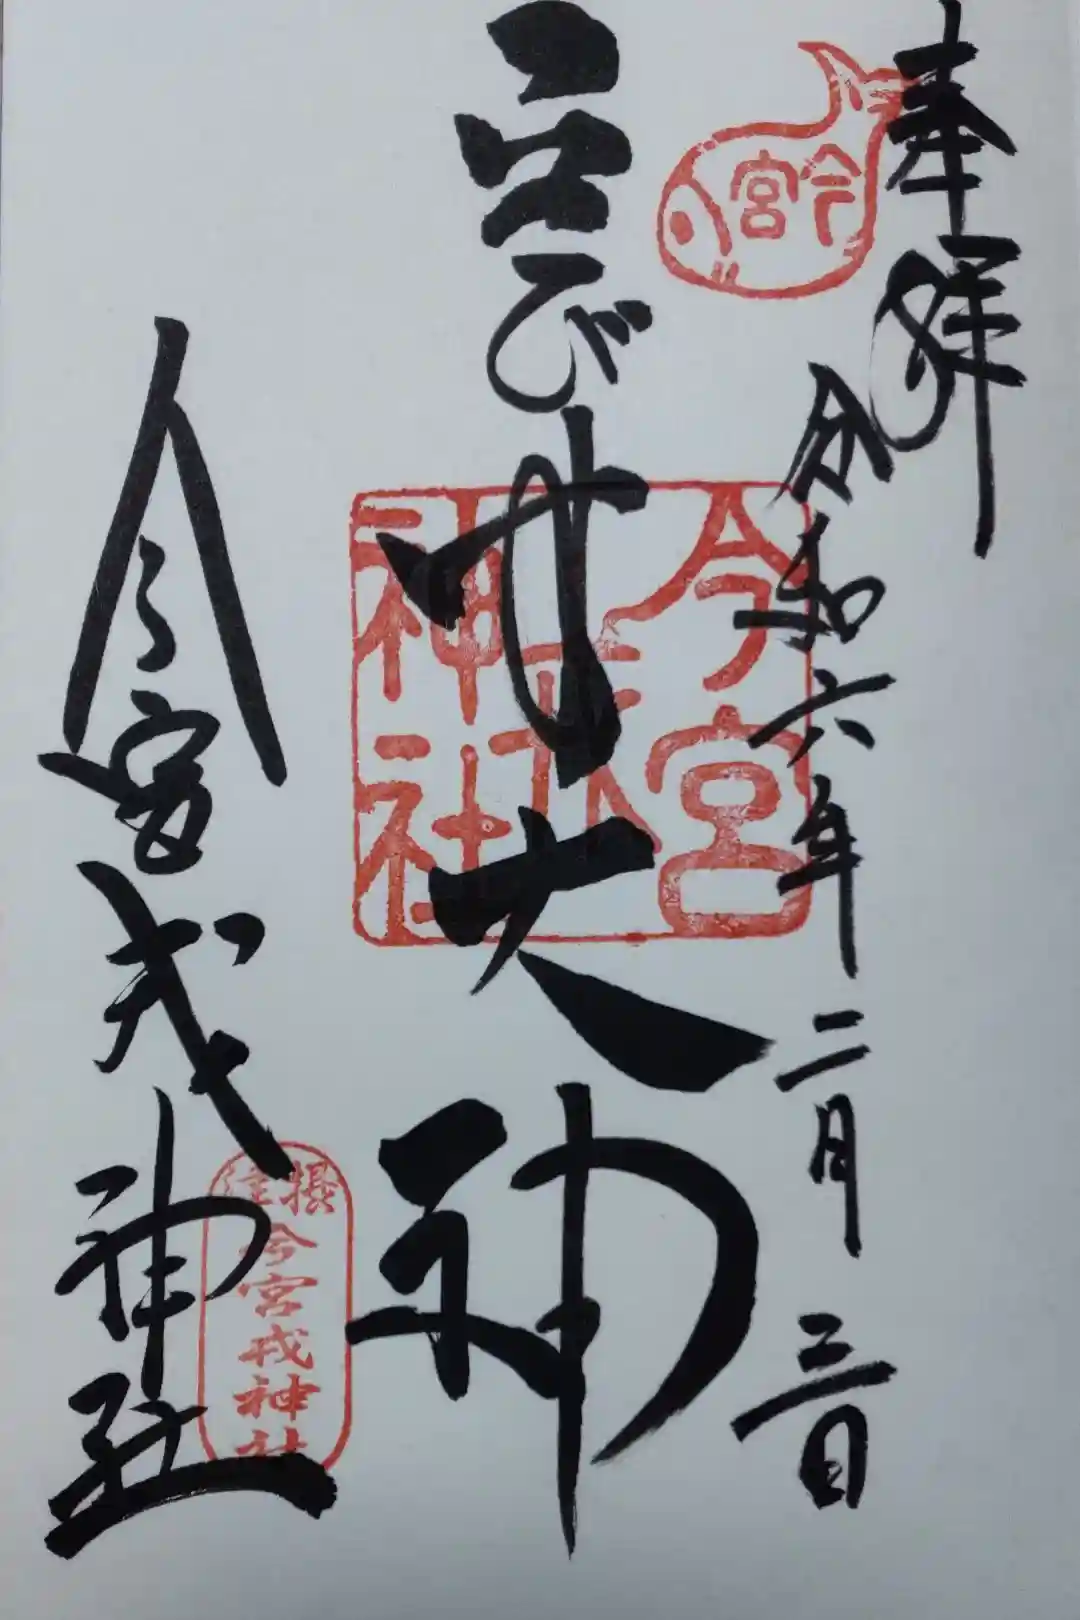 奉拝
令和六年二月三日
今宮
ゑびす大神
今宮
戎
神社
今宮戎神社
摂津
今宮戎神社